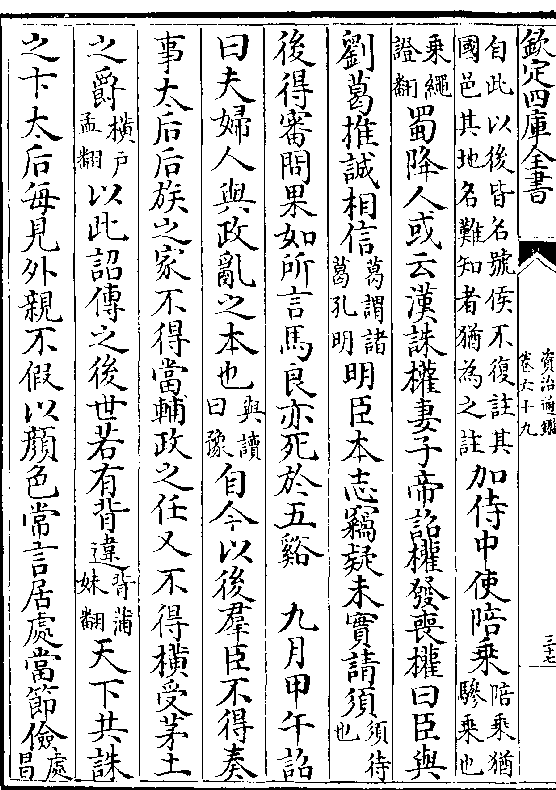 欽定四庫全書
資治通鑑
卷六十九
三十七
自此以後皆名號侯不復註其
國邑其地名難知者猶為之註
加侍中使陪乘
陪乘猶
驂乘也
乘繩
證翻
蜀降人或云漢誅權妻子帝詔權發喪權曰臣與
劉葛推誠相信
葛謂諸
葛孔明
明臣本志竊疑未實請須
須待
也
後得審問果如所言馬良亦死於五谿 九月甲午詔
曰夫婦人與政亂之本也
與讀
曰豫
自今以後羣臣不得奏
事太后后族之家不得當輔政之任又不得橫受茅土
之爵
橫戶
孟翻
以此詔傳之後世若有背違
背蒲
妹翻
天下共誅
之卞太后每見外親不假以顔色常言居處當節儉
處
昌